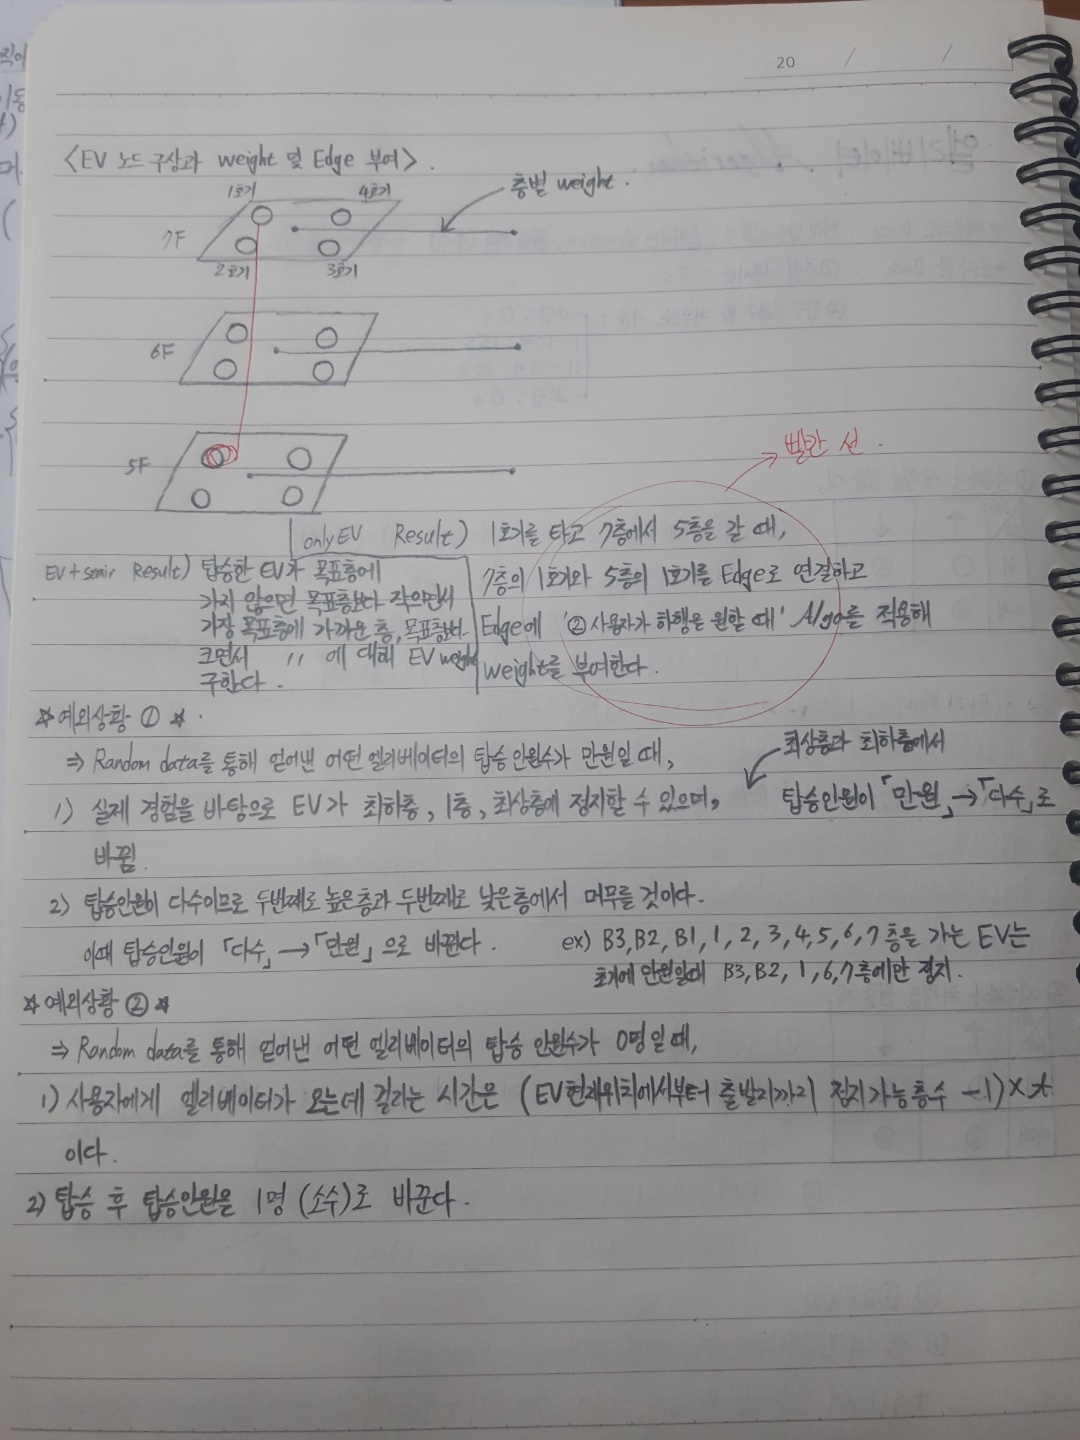 20 / /
<EV 노드 구상과 weight 및 Edge 부여>.
1호기 4호기
층별 weight.
7F
2호기 3호기
6F
5F
빨간 선.
only EV Result) 1호기를 타고 7층에서 5층을 갈 때,
7층의 1호기와 5층의 1호기를 Edge로 연결하고
Edge에 '② 사용자가 하행을 원할 때' Algo를 적용해
weight를 부여한다.
EV + Result) 탑승한 EV가 목표층에
가지 않으면 목표층보다 작으면서
가장 목표층에 가까운 층, 목표층보다
크면서 〃 에 대해 EV weight
구한다.
☆예외상황 ① ☆.
⇒ Random data를 통해 얻어낸 어떤 엘리베이터의 탑승 인원수가 만원일 때,
최상층과 최하층에서
1) 실제 경험을 바탕으로 EV가 최하층, 1층, 최상층에 정지할 수 있으며, 탑승인원이 「만원」→「다수」로
바뀜.
2) 탑승인원이 다수이므로 두번째로 높은층과 두번째로 낮은층에서 머무를 것이다.
이때 탑승인원이 「다수」→「만원」으로 바뀐다.
ex) B3, B2, B1, 1, 2, 3, 4, 5, 6, 7 층을 가는 EV는
초기에 만원일때 B3, B2, 1, 6, 7층에만 정지.
☆예외상황 ② ☆
⇒ Random data를 통해 얻어낸 어떤 엘리베이터의 탑승 인원수가 0명일 때,
1) 사용자에게 엘리베이터가 오는데 걸리는 시간은 (EV현재위치에서부터 출발지까지 정지가능층수 -1) × t
이다.
2) 탑승 후 탑승인원을 1명 (소수)로 바꾼다.